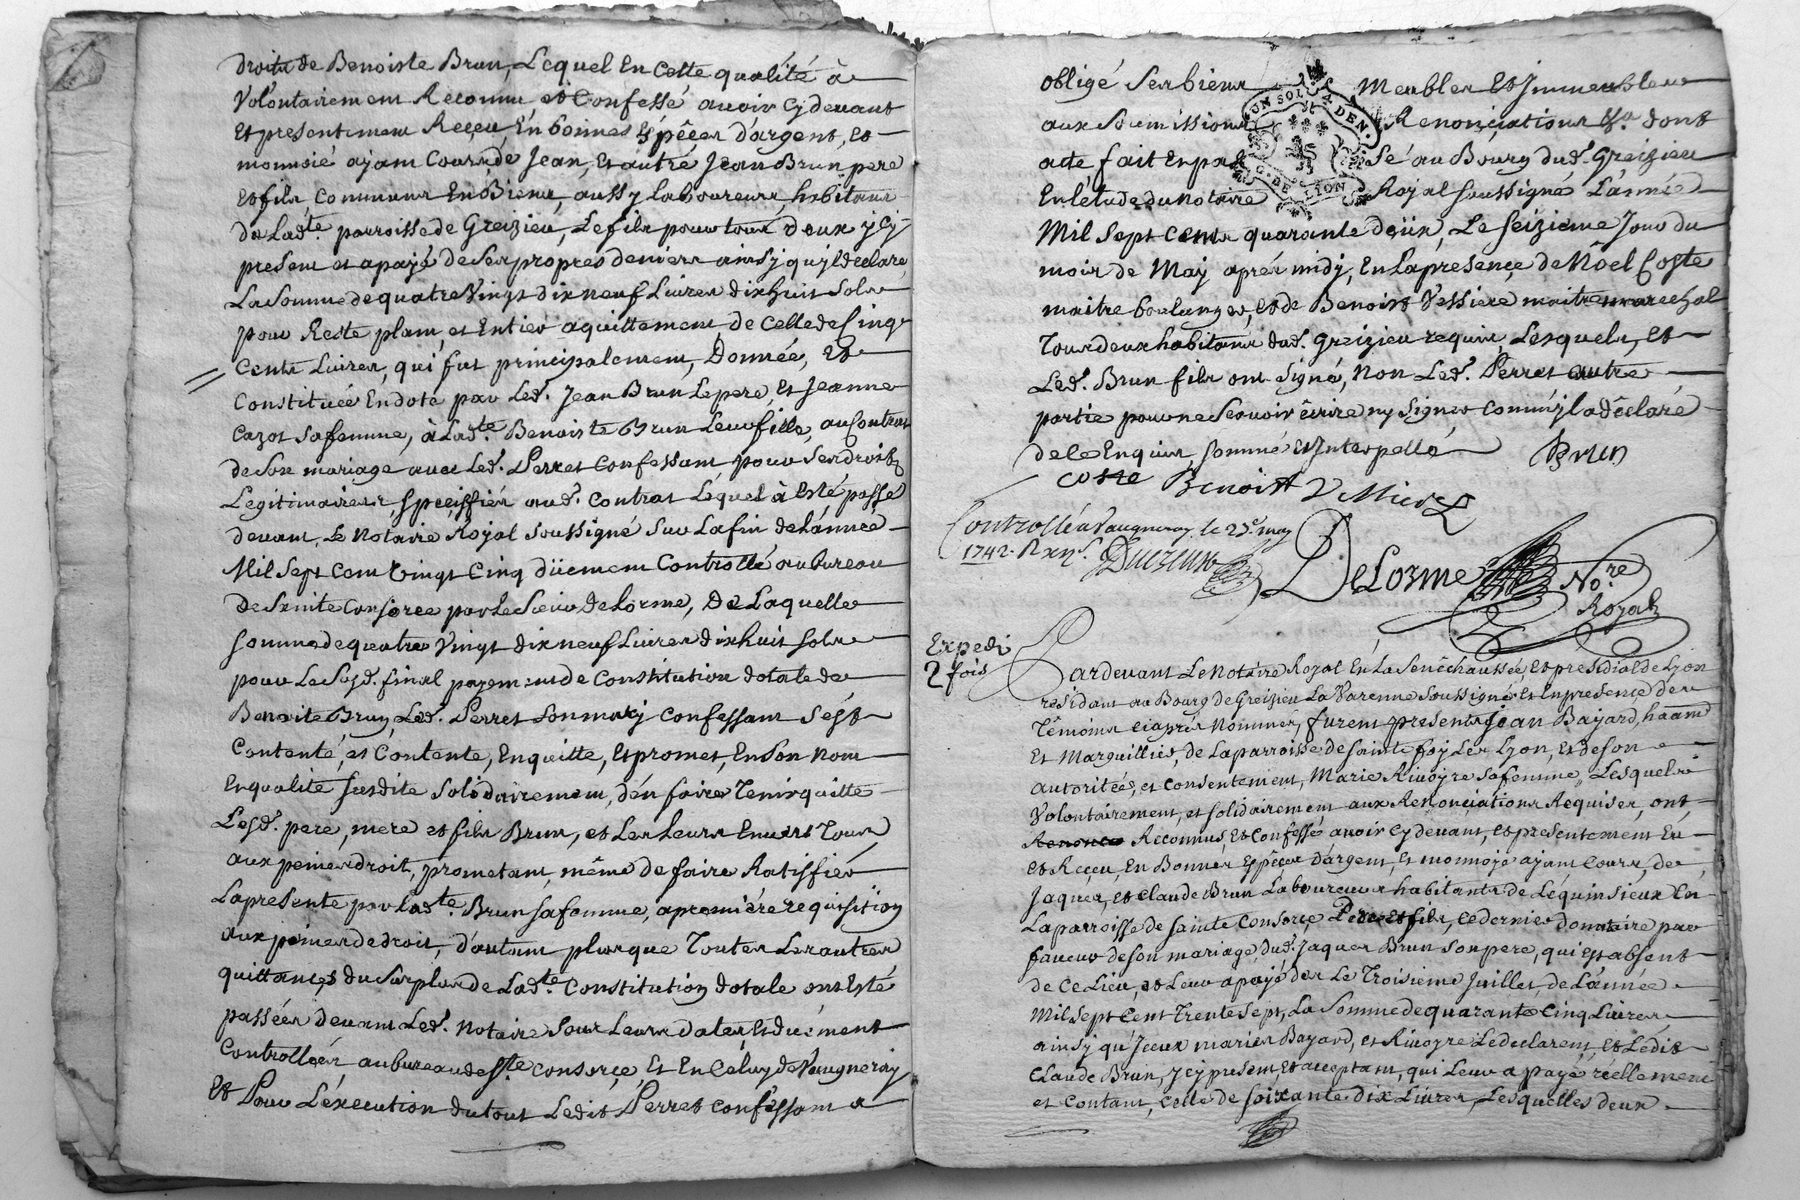 droits de Benoiste Brun, Lequel En Cette qualité à
Volontairement Reconnu et Confessé avoir cy devant
Et presentement Reçeu, En bonnes Espêces d'argent, et
monnoïé ajant Cours, de Jean, Et autre Jean Brun pere
Et fils, Communs En Biens, aussy Laboureurs, habitans
de Ladte. parroisse de Greizieu, Le fils pour tous deux ycy
present et a payé de Ses propres deniers ainsy quyl declare
La Somme de quatre Vingt dix neuf Livres dix huit Sols
pour Reste plain, et Entier aquittement de Celle de Cinq
Cents Livres, qui fut principalement, Donnée, Et
Constituée En dote par Led. Jean Brun Le pere, Et Jeanne
Cazot Sa femme, à Ladte. Benoiste Brun Leur fille, au Contrat
de Son mariage avec Led. Perret Confessant pour Ses droits
Legitimaires speçiffiés aud. Contrat Lequel à Esté passé
devant Le Notaire Royal Soussigné Sur La fin de L'année
Mil Sept Cent Vingt Cinq düement Controllé au bureau
de Sainte Consorce par Le Sieur deLorme, De Laquelle
Somme de quatre Vingt dix neuf Livres dix huit Sols
pour Le Susd. final payement de Constitution dotale de
Benoite Brun, Led. Perret Son mary Confessant S'ést
Contenté, et Contente, En quitte, Et promet, En Son Nom
En qualité Susdite Solidairement, d'en faire Tenir quitte
Lesd. pere, mere et fils Brun, et Les Leurs Envers Tous
aux peines de droit, prometant, même de faire Ratiffier
La presente par Ladte. Brun Sa femme, a premiére requisition
aux peines de droit, d'autant plus que Toutes Les autres
quittances du Surplus de Ladte. Constitution dotale ont Esté
passées devant Led. Notaire Sous Leurs dates, Et düement
Controllées au bureau de Ste. Consorçe, Et En Celuy de Vaugneray
Et Pour L'éxecution du tout Ledit Perret Confessant a
obligé Ses biens Meubles Et Immeubles
aux Soumissions Renonçiations &a dont
acte, fait Et passé au Bourg dud. Greizieu
En L'étude du Notaire Royal Soussigné L'année
Mil Sept Cents quarante deüx, Le Seizieme Jour du
mois de May aprés midy, En La presençe de Nôel Coste
maitre boulanger, et de Benoist Vessiere maitre marechal
Tous deux habitans dud. Greizieu requis Lesquels, et
Led. Brun fils ont Signé, Non Led. Perret autre
partie pour ne Sçavoir écrire ny Signer Comm'yl a déclaré
de le Enquis Sommé Et Interpellé
Brun
Coste Benoist
UN SOL 4 DEN.
G. DE LYON
Controllé a Vaugneray le 23e. may
1742.
DeLorme Nore.
Royal
Expedi
2 fois
Pardevant Le Notaire Royal En La Senêchaussée, Et presidial de Lyon
residant au Bourg de Greizieu La Varenne Soussigné Et En presence des
Têmoins Ciaprés Nommés, furent presents Jean Bayard,
Et Marguillier, de La parroisse de Sainte foy Les Lyon, Et de Son
autorité, et Consentement, Marie Rivoyre Sa femme, Lesquels
Volontairement, et Solidairement aux Renonçiations Requises, ont
Reconnus, Et Confessé avoir Cy devant, Et presentement Eu
et Reçeu, En Bonnes Espêces d'argent, Et monnoye ajant Cours, de
Jaques, et Claude Brun Laboureurs habitants de Lequinsieux En
La parroisse de Sainte Consorçe Pere et fils, Ce dernier donataire par
faveur de Son mariage, dud. Jaques Brun Son pere, qui Est absent
de Ce Lieu, et Leur a payé des Le Troisieme Juillet, de L'année
Mil Sept Cent Trente Sept, La Somme de quarante Cinq Livres
ainsy qu'Jceux mariés Bayard, et Rivoyre Le declarent, Et Ledit
Claude Brun, ycy present Et acceptant, qui Leur a payé réellement
et Contant, Celle de Soixante dix Livres, Lesquelles deux